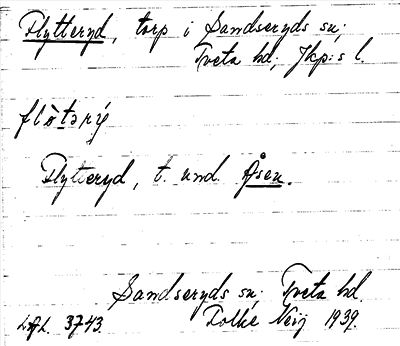 Flytteryd, torp i Sandseryds sn;
Tveta hd, Jkp:s l.
flòtərý
Flytteryd, t. und. Åsen.
Sandseryds sn; Tveta hd.
3743. Folke Neij 1939.